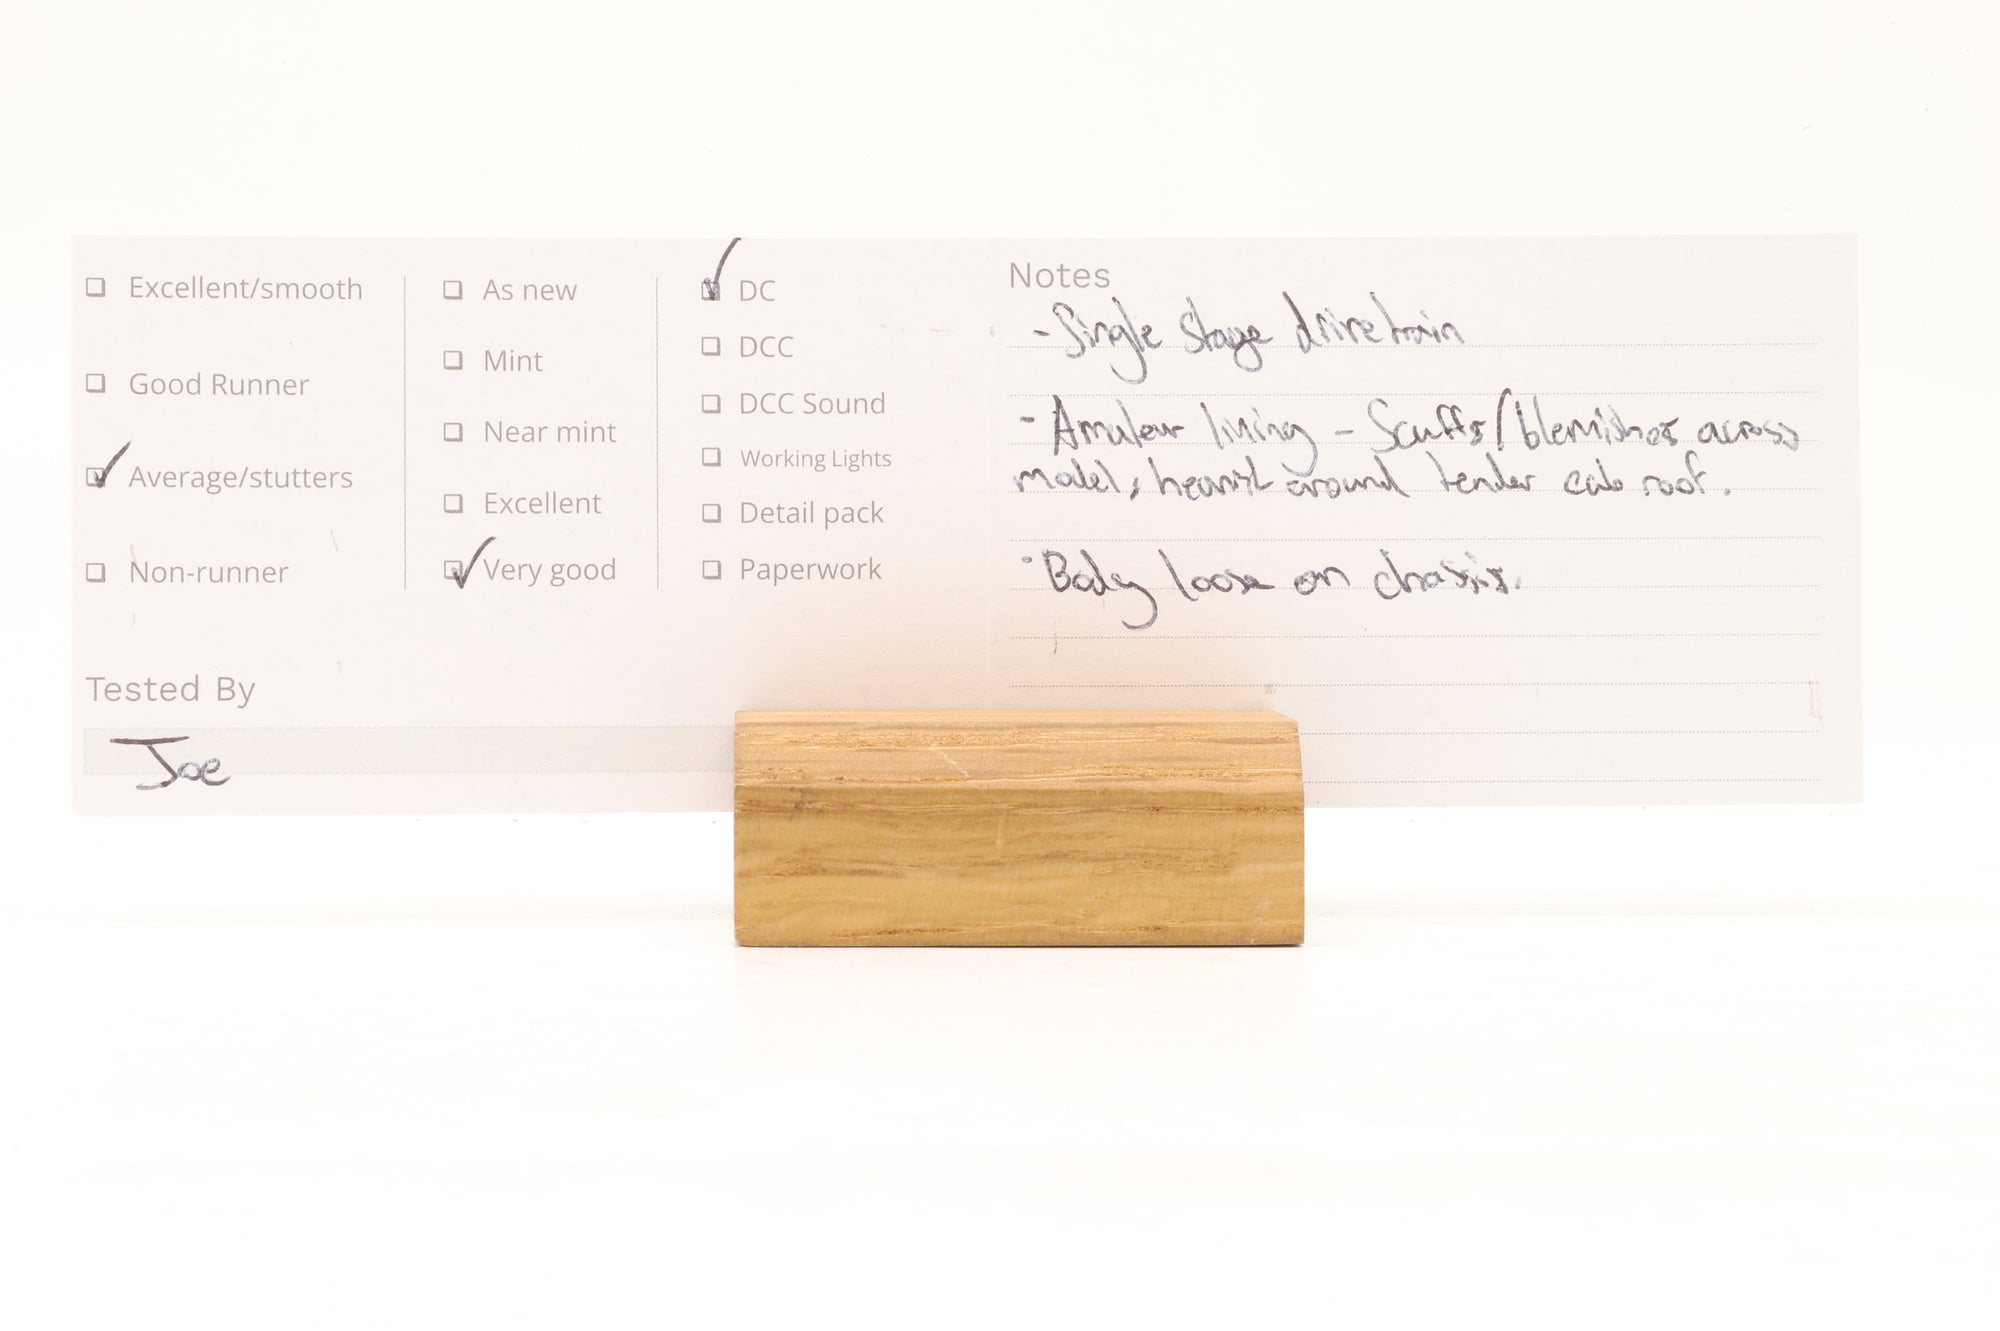 Excellent/smooth
Good Runner
Average/stutters
Non-runner
As new
Mint
Near mint
Excellent
Very good
DC
DCC
DCC Sound
Working Lights
Detail pack
Paperwork
Tested By
Joe
Notes
- Single Stage drivetrain
- Amateur lining - Scuffs/blemishes across
model, heaviest around tender cab roof.
- Body loose on chassis.